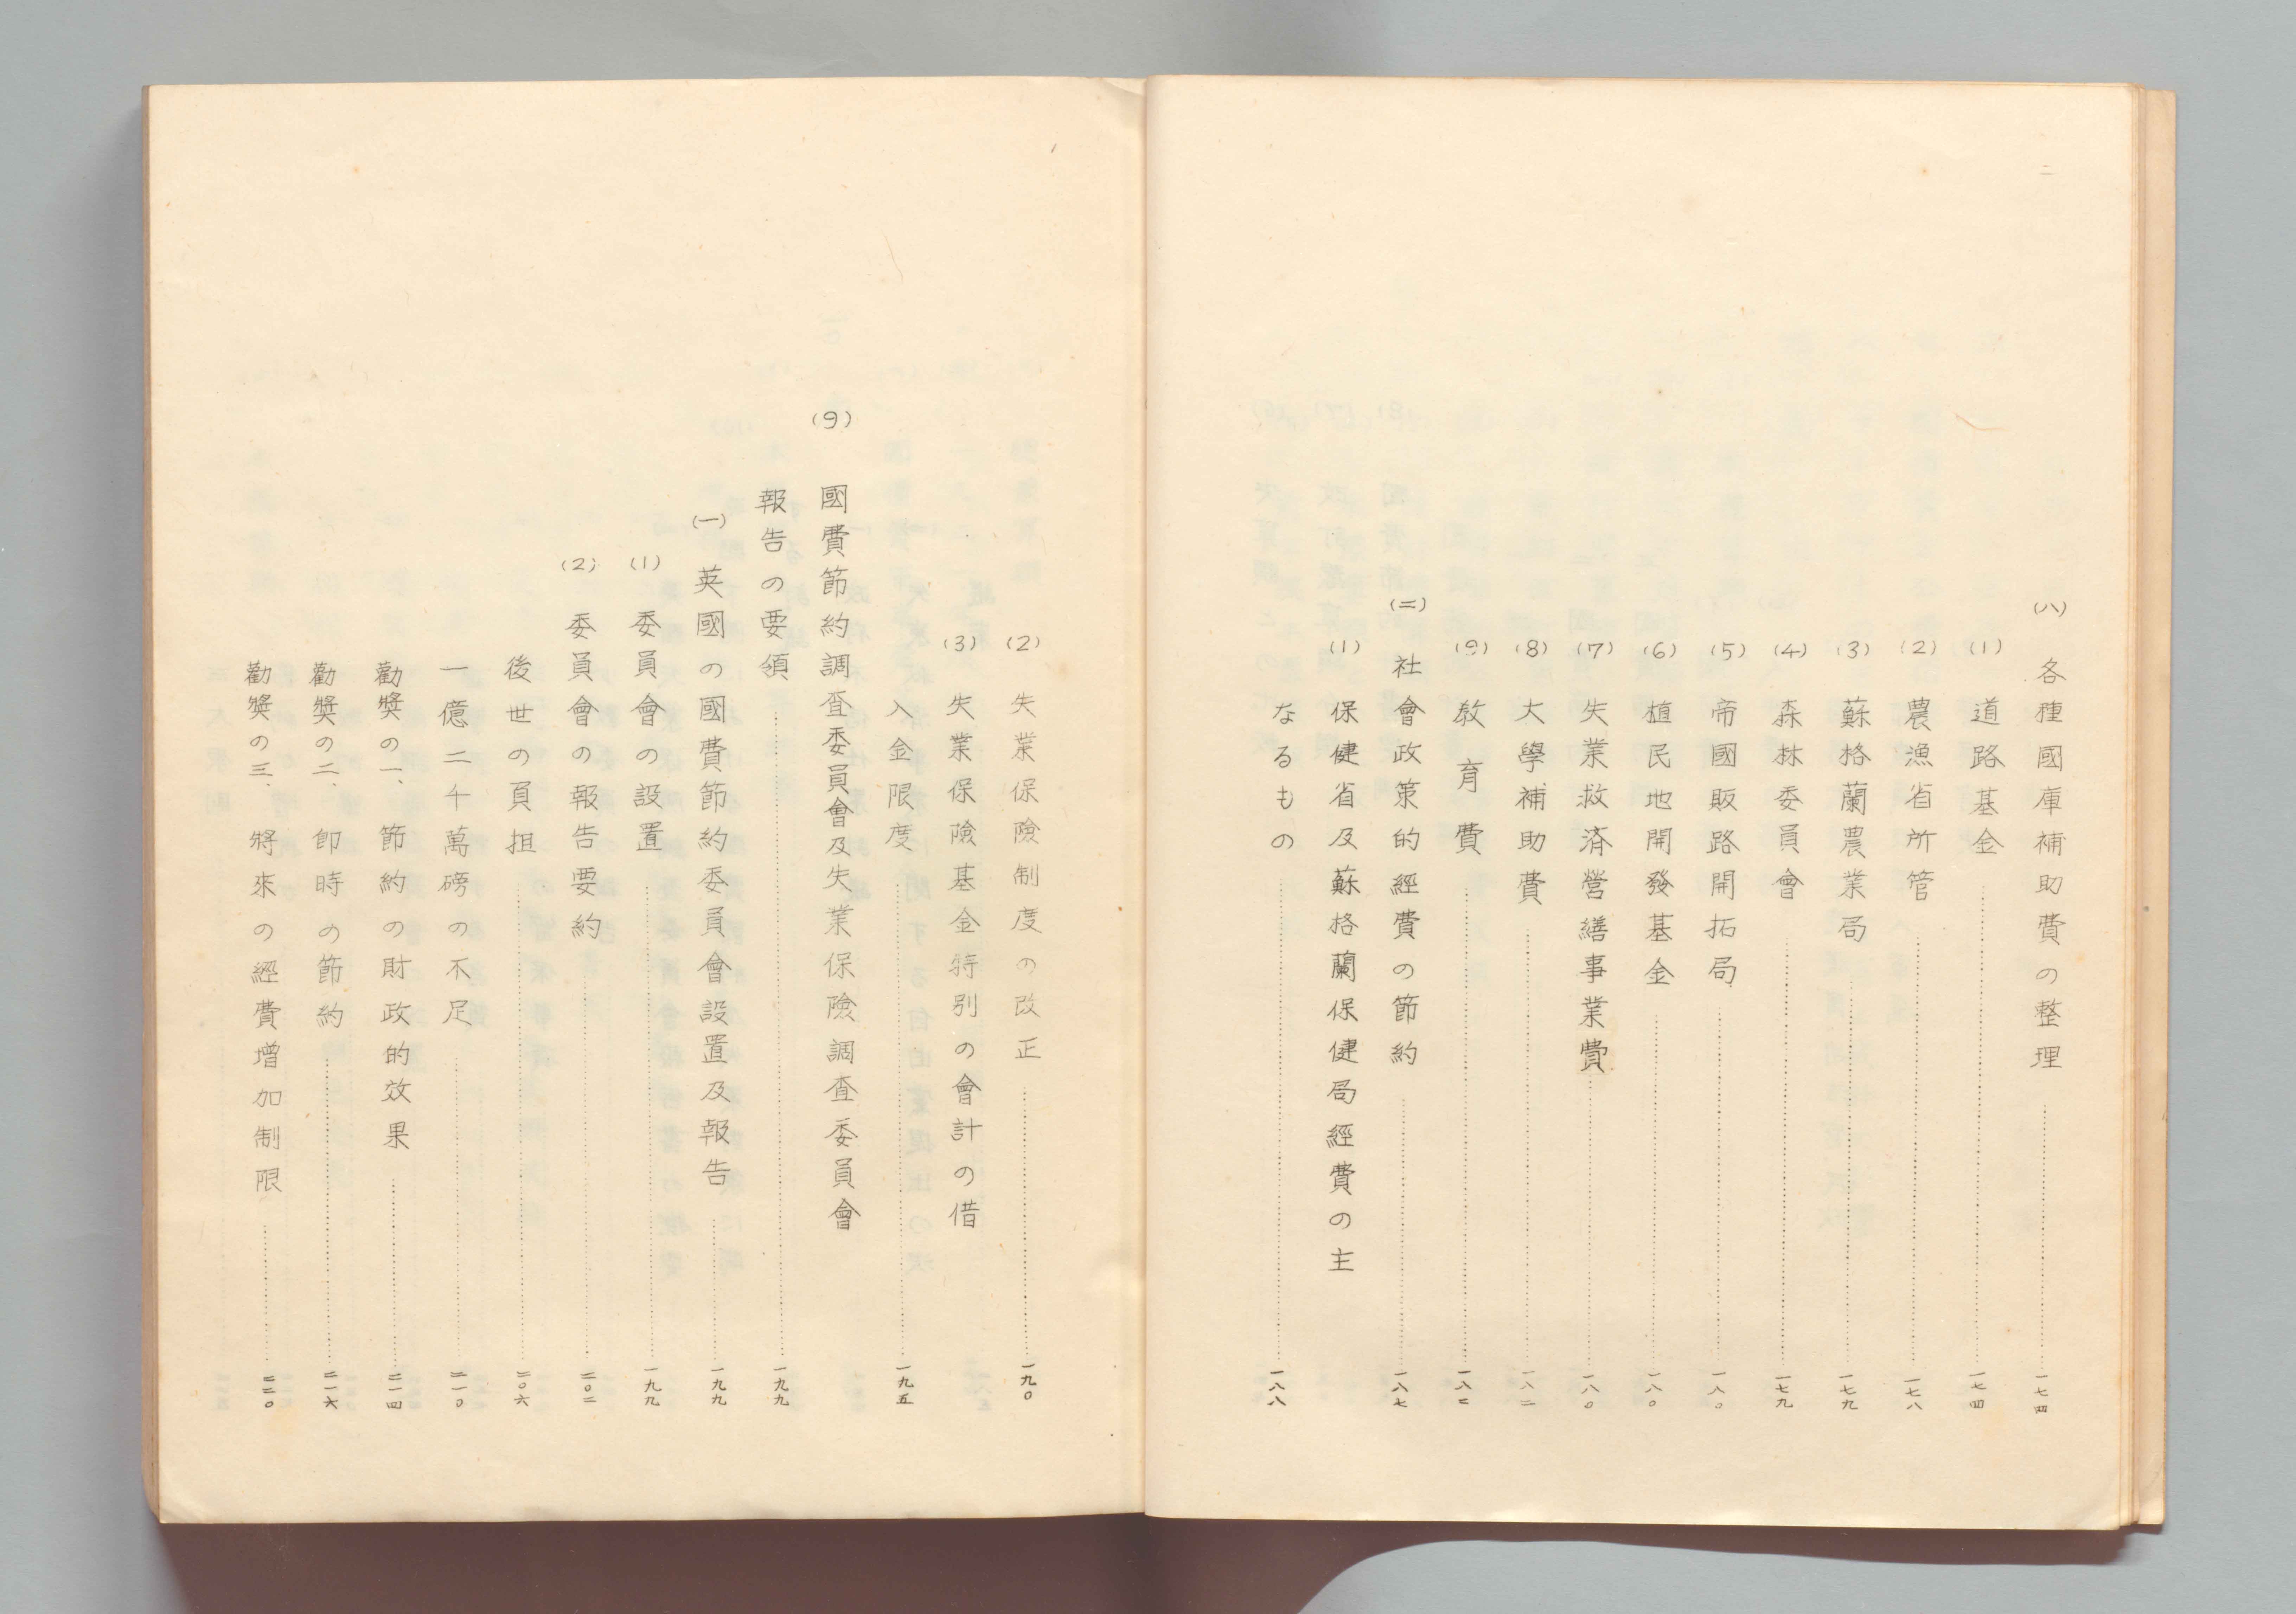 二
(八) 各種國庫補助費の整理……一七四
(1) 道路基金……一七四
(2) 農漁省所管……一七八
(3) 蘇格蘭農業局……一七九
(4) 森林委員會……一七九
(5) 帝國販路開拓局……一八〇
(6) 植民地開發基金……一八〇
(7) 失業救済營繕事業費……一八〇
(8) 大學補助費……一八二
(9) 敎育費……一八二
(二) 社會政策的經費の節約……一八七
(1) 保健省及蘇格蘭保健局經費の主
なるもの……一八八
(2) 失業保險制度の改正……一九〇
(3) 失業保險基金特別の會計の借
入金限度……一九五
(9) 國費節約調査委員會及失業保險調査委員會
報告の要領……一九九
(一) 英國の國費節約委員會設置及報告……一九九
(1) 委員會の設置……一九九
(2) 委員會の報告要約……二〇二
後世の負担……二〇六
一億二千萬磅の不足……二一〇
勸奬の一、節約の財政的效果……二一四
勸奬の二、卽時の節約……二一六
勸奬の三、將來の經費增加制限……二二〇